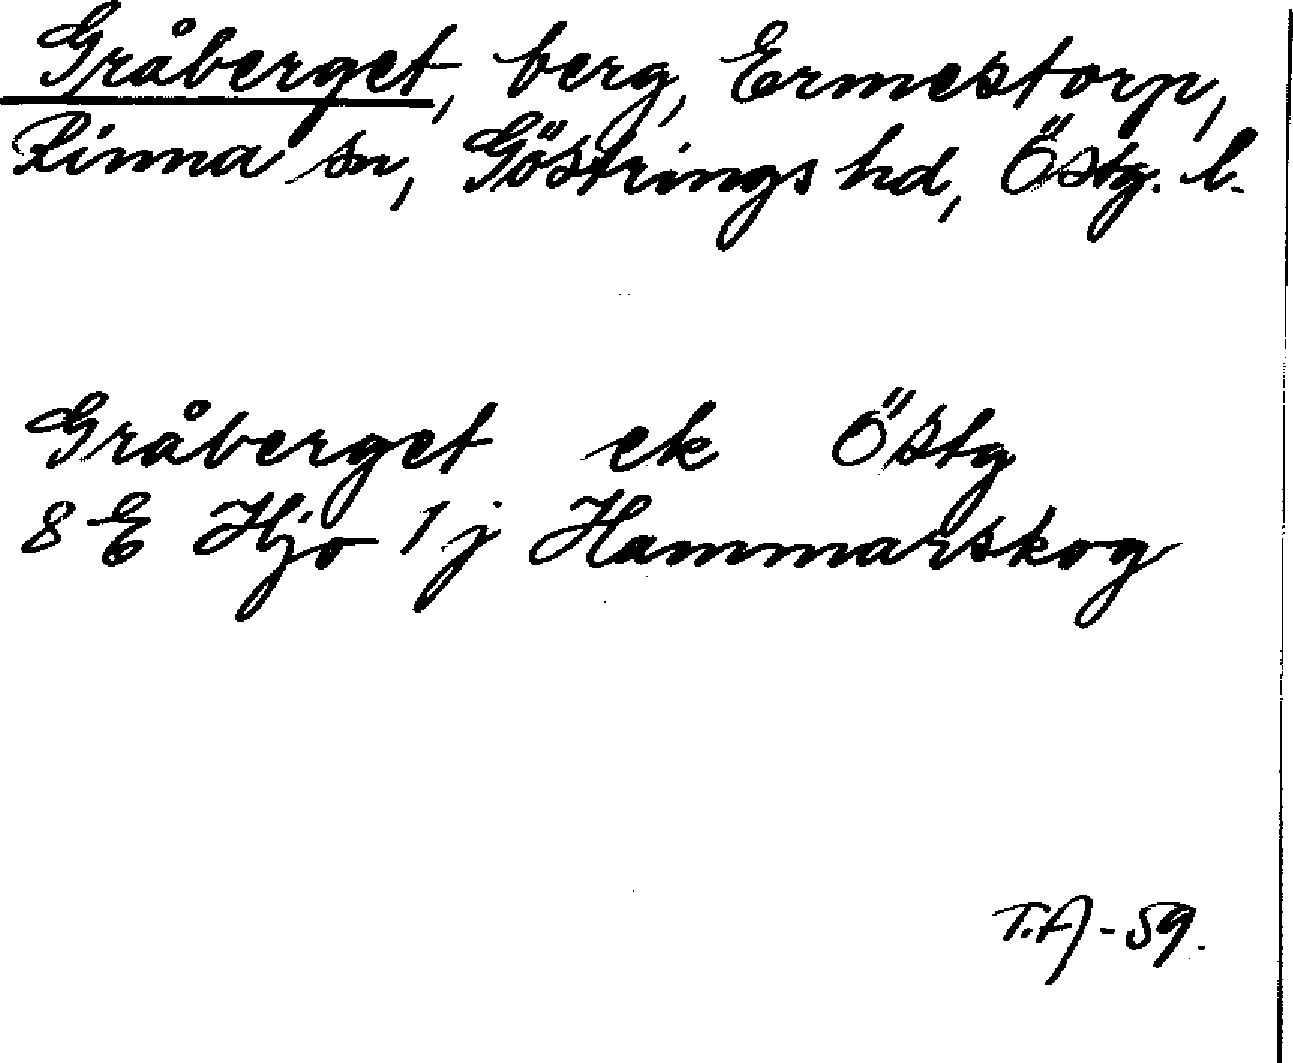 Gråberget, berg, Ermestorp,
Rinna sn, Göstrings hd, Östg. l.
Gråberget ek Östg
8 E Hjo 1 j Hammarskog
T.A - 59.